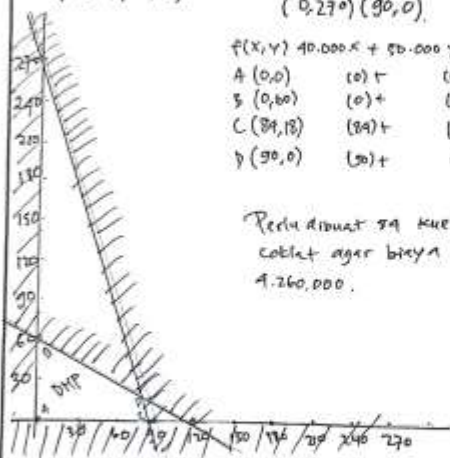 (0,270) (90,0)
f(x,y) 40.000x + 50.000 y
A (0,0) (0) +
B (0,60) (0) +
C (84,18) (84) +
D (90,0) (90) +
Perlu dibuat 84 kue
coklat agar biaya
4.260.000.
270
240
210
180
150
120
90
60
30
D
DMP
A
30 60 90 120 150 180 210 240 270